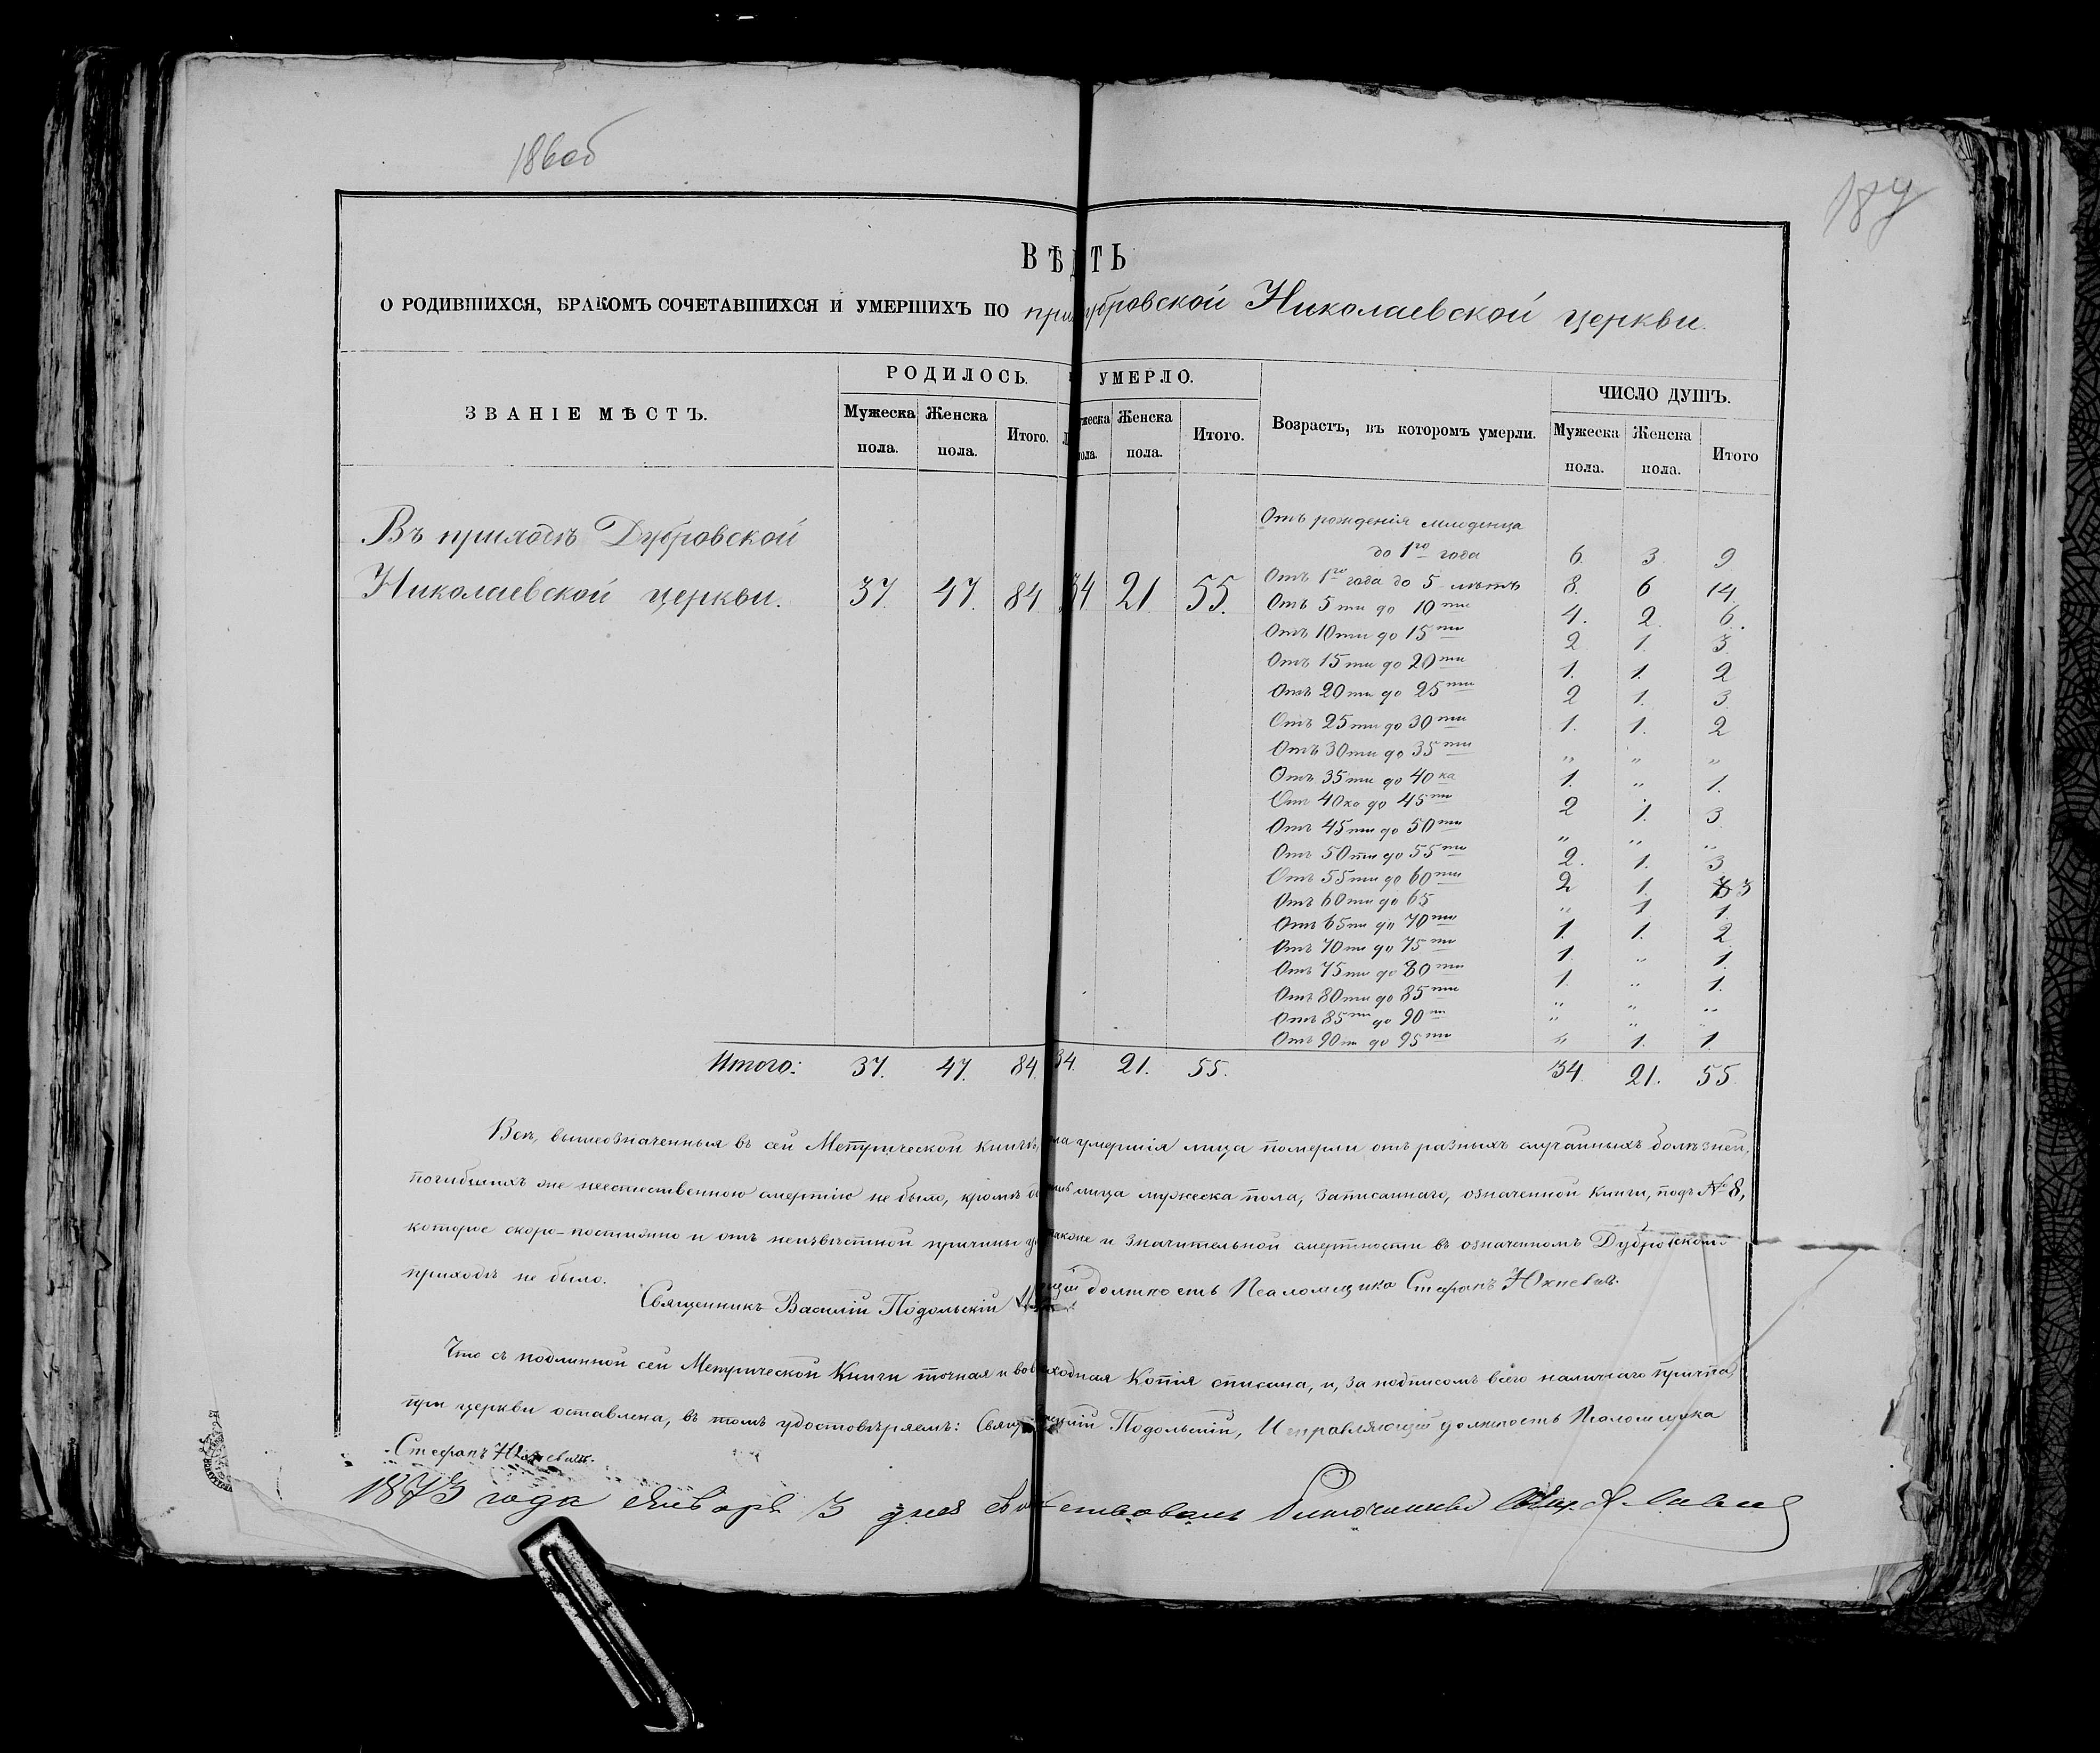 186об
187
ВѢ ТЬ
О РОДИВШИХСЯ, БРАКОМЪ СОЧЕТАВШИХСЯ И УМЕРШИХЪ ПО при убровской Николаевской церкви.
ЗВАНІЕ МѢСТЪ.
РОДИЛОСЬ.
УМЕРЛО.
Возрастъ, въ которомъ умерли.
ЧИСЛО ДУШЪ.
Мужеска пола. Женска пола. Итого. жеска ола. Женска пола. Итого. Мужеска пола. Женска пола. Итого
Въ приходѣ Дубровской
Николаевской церкви. 37. 47. 84 34 21 55.
Отъ рожденія младенца
до 1го года 6. 3. 9
Отъ 1го года до 5 лѣтъ 8. 6 14.
Отъ 5ти до 10ти 4. 2. 6.
Отъ 10ти до 15ти 2 1. 3.
Отъ 15ти до 20ти 1. 1. 2
Отъ 20ти до 25ти 2 1. 3.
Отъ 25ти до 30ти 1. 1. 2
Отъ 30ти до 35ти " " "
Отъ 35ти до 40ка 1. " 1.
Отъ 40ка до 45ти 2 1. 3.
Отъ 45ти до 50ти " " "
Отъ 50ти до 55ти 2. 1. 3
Отъ 55ти до 60ти 2 1. 3
Отъ 60ти до 65 " 1 1.
Отъ 65ти до 70ти 1. 1. 2
Отъ 70ти до 75ти 1. " 1.
Отъ 75ти до 80ти 1. " 1.
Отъ 80ти до 85ти " " "
Отъ 85ти до 90ти " " "
Отъ 90ти до 95ти " 1. 1.
Итого: 37. 47. 84. 34. 21. 55. 34. 21. 55.
Всѣ, вышеозначенныя въ сей Метрической книгѣ, на умершія лица померли отъ разныхъ случайныхъ болѣзней,
погибшихъ же неестественною смертію не было, кромѣ лица мужеска пола, записаннаго, означенной книги, подъ № 8,
которое скоро-постижно и отъ неизвѣстной причины и значительной смертности въ означенномъ Дубровскомъ
приходѣ не было.
Священникъ Василій Подольскій щій должность Псаломщика Стефанъ Юхневичъ.
Что съ подлинной сей Метрической Книги точная и во ходная Копія списана, и, за подписомъ всего наличнаго причта,
при церкви оставлена, въ томъ удостовѣряемъ: Свящ силій Подольскій, Исправляющій должность Псаломщика
Стефанъ Юхневичъ.
1873 года Января 3 дня тельствовалъ Благочинный Свящ.